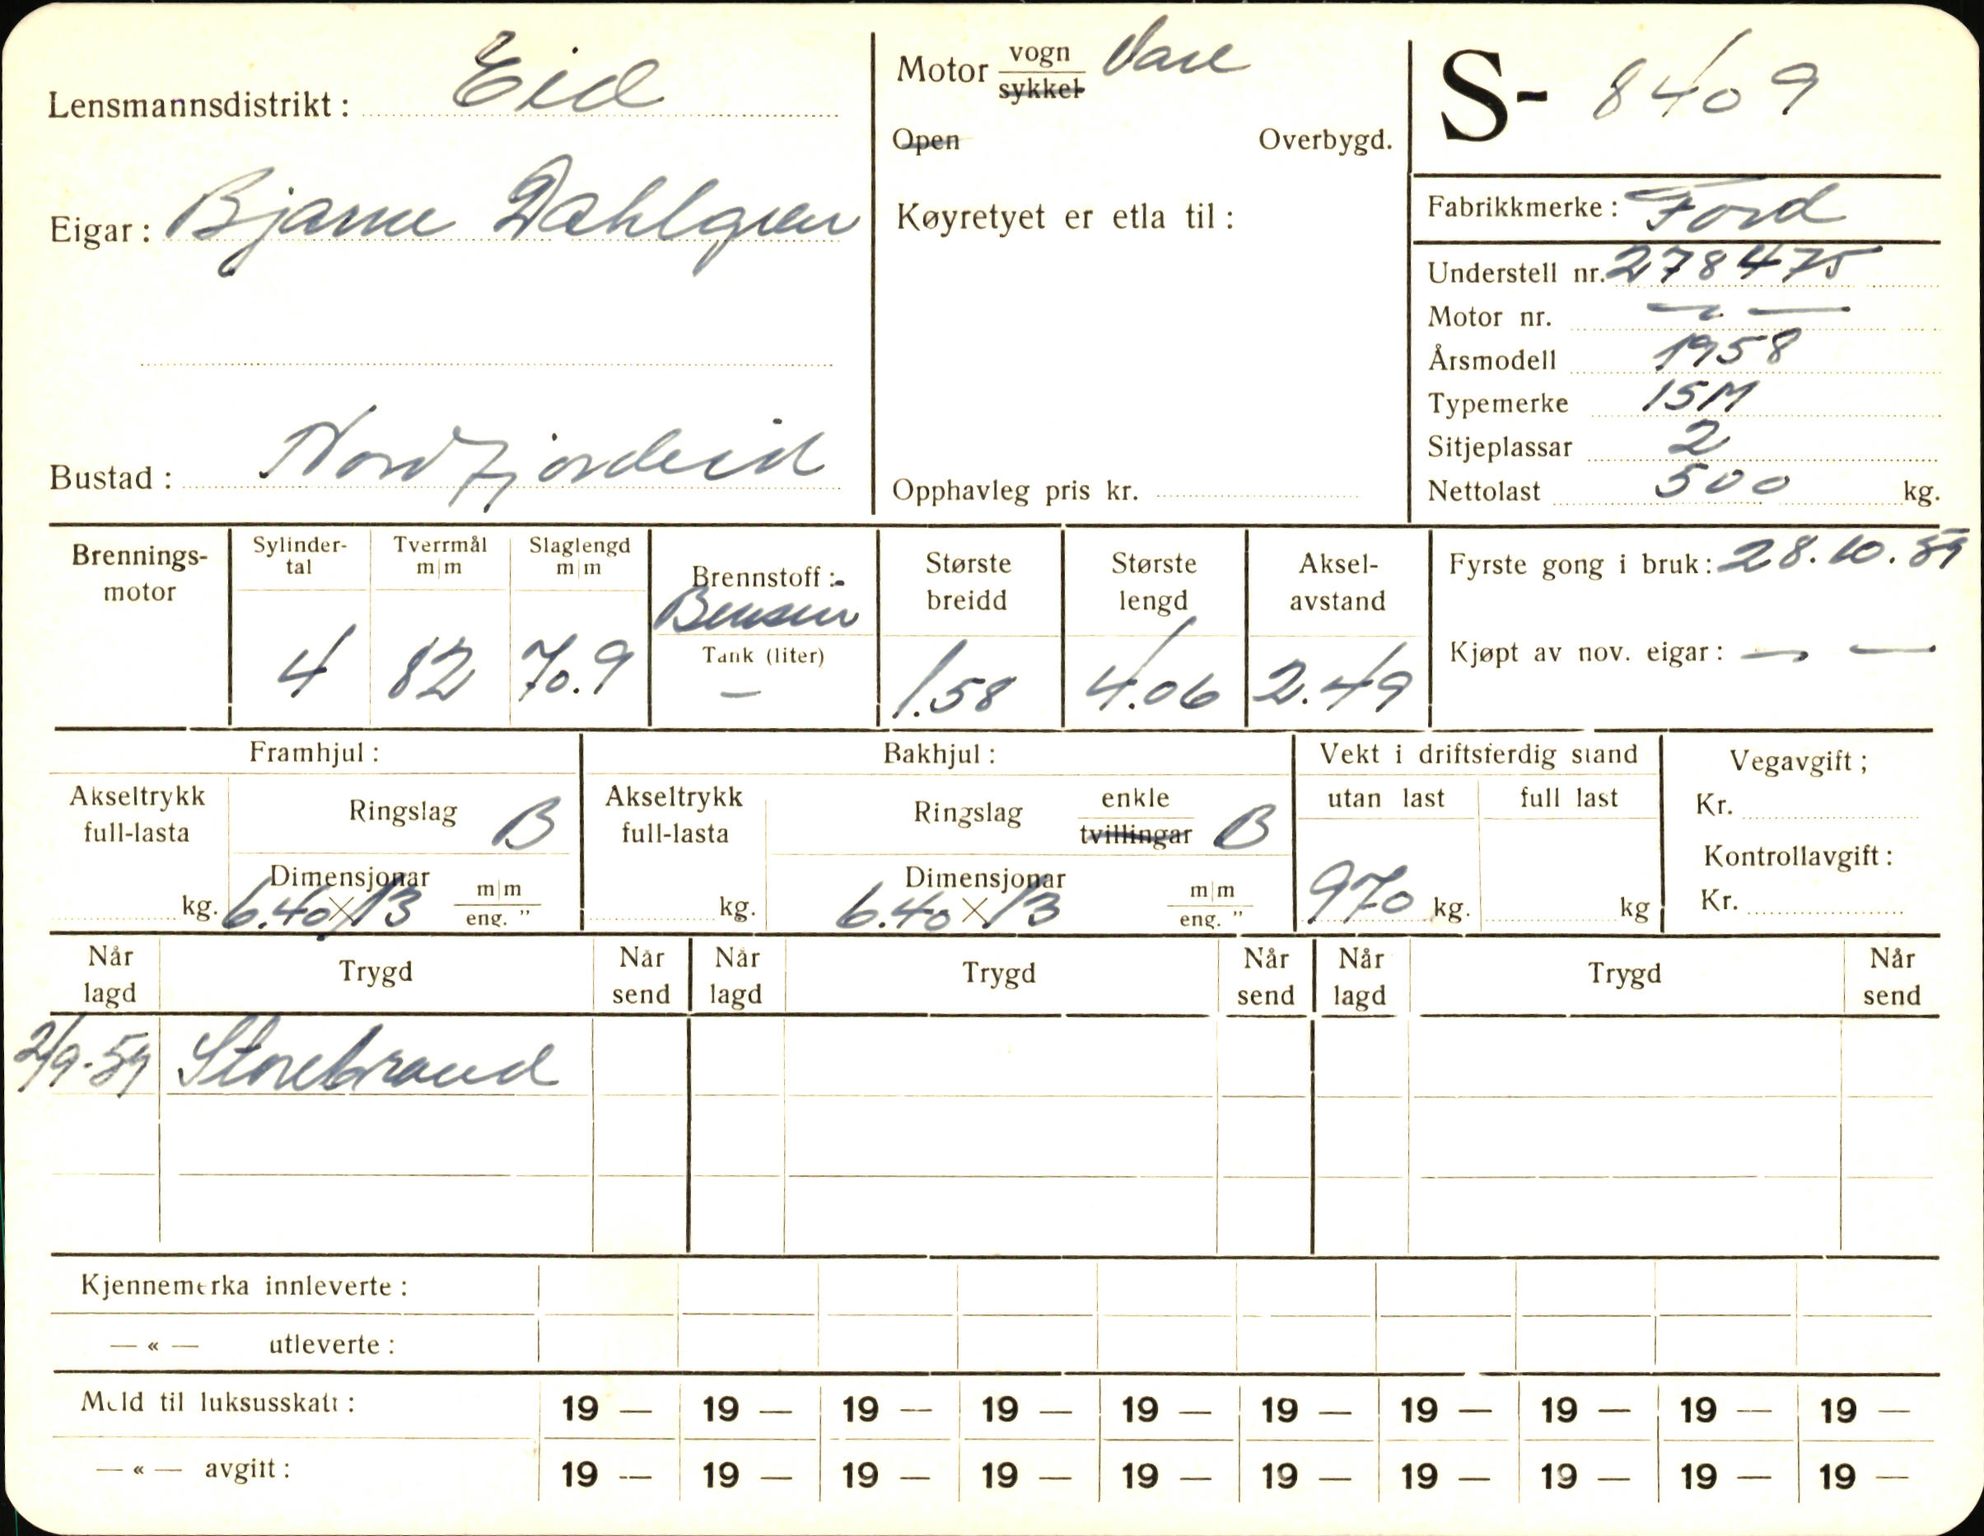 Lensmannsdistrikt: Eid
Eigar: Bjarne Dahlgren
Bustad: Nordfjordeid
Motor vogn Vare
sykkel
Open Overbygd.
Køyretyet er etla til:
Opphavleg pris kr.
S- 8409
Fabrikkmerke: Ford
Understell nr. 278475
Motor nr. — " —
Årsmodell 1958
Typemerke 15M
Sitjeplassar 2
Nettolast 500 kg.
Brennings-
motor
Sylinder-
tal
4
Tverrmål
m/m
82
Slaglengd
m/m
70.9
Brennstoff:
Bensin
Tank (liter)
—
Største
breidd
1.58
Største
lengd
4.06
Aksel-
avstand
2.49
Fyrste gong i bruk: 28.10.59
Kjøpt av nov. eigar: — " —
Framhjul:
Akseltrykk
full-lasta
kg.
Ringslag B
Dimensjonar
6.40 × 13 m/m
eng. "
Bakhjul:
Akseltrykk
full-lasta
kg.
Ringslag enkle
tvillingar B
Dimensjonar
6.40 × 13 m/m
eng. "
Vekt i driftsferdig stand
utan last full last
970 kg. kg
Vegavgift;
Kr.
Kontrollavgift:
Kr.
Når
lagd Trygd Når
send Når
lagd Trygd Når
send Når
lagd Trygd Når
send
2/9-59 Storebrand
Kjennemerka innleverte:
— « — utleverte:
Meld til luksusskatt: 19 — 19 — 19 — 19 — 19 — 19 — 19 — 19 — 19 — 19 —
— « — avgift: 19 — 19 — 19 — 19 — 19 — 19 — 19 — 19 — 19 — 19 —